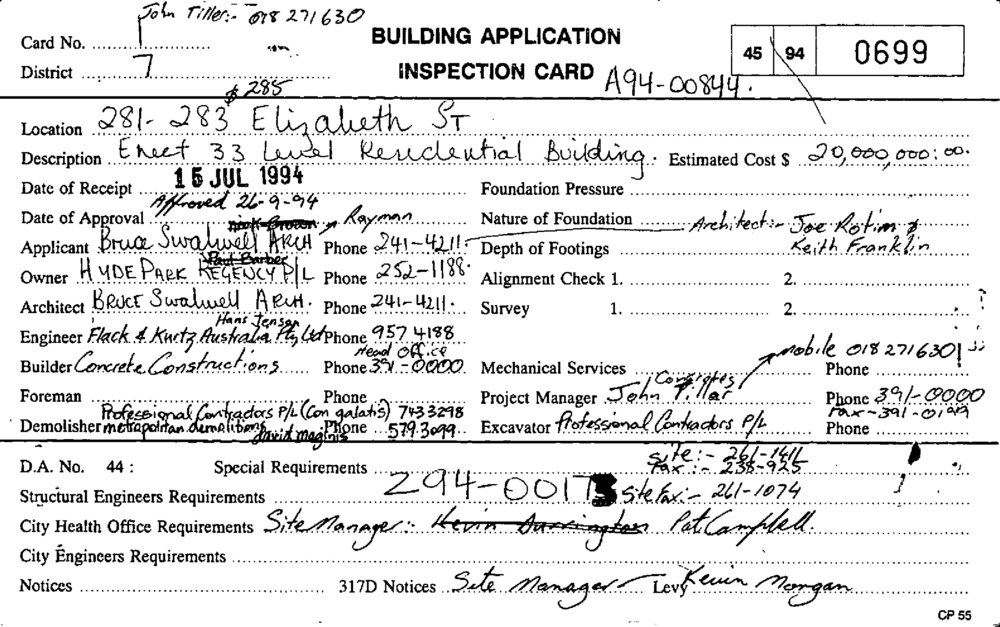 John Tiller:- 018 271630
Card No.
BUILDING APPLICATION
INSPECTION CARD A94-00844.
45 94 0699
District 7
& 285
Location 281- 283 Elizabeth ST
Description Erect 33 Level Residential Building. Estimated Cost $ 20,000,000:00.
Date of Receipt 15 JUL 1994 Foundation Pressure
Approved 26-9-94
Date of Approval Rayman Nature of Foundation Architect:- Joe Rotim &
Applicant Bruce Swalwell ARCH Phone 241-4211. Depth of Footings Keith Franklin
Paul Barber
Owner HYDE PARK REGENCY P/L Phone 252-1188. Alignment Check 1. 2.
Architect BRUCE Swalwell ARCH. Phone 241-4211. Survey 1. 2.
Hans Jensen
Engineer Flack & Kurtz Australia Pty Ltd Phone 957 4188
Head Office mobile 018 271630
Builder Concrete Constructions Phone 391-0000. Mechanical Services Phone
Foreman Phone Project Manager John Tillar Phone 391-0000
Professional Contractors P/L (Con galatis) 743 3298 Fax-391-0199
Demolisher metropolitan demolitions david maginis Phone 579 3099 Excavator Professional Contractors P/L Phone
site:- 261-1411
D.A. No. 44 : Special Requirements Fax:- 235-925
Structural Engineers Requirements Z94-00173 Site fax:- 261-1074
City Health Office Requirements Site Manager:- Kevin Durrington Pat Campbell.
City Engineers Requirements
Notices 317D Notices Site Manager Levy Kevin Morgan
CP 55